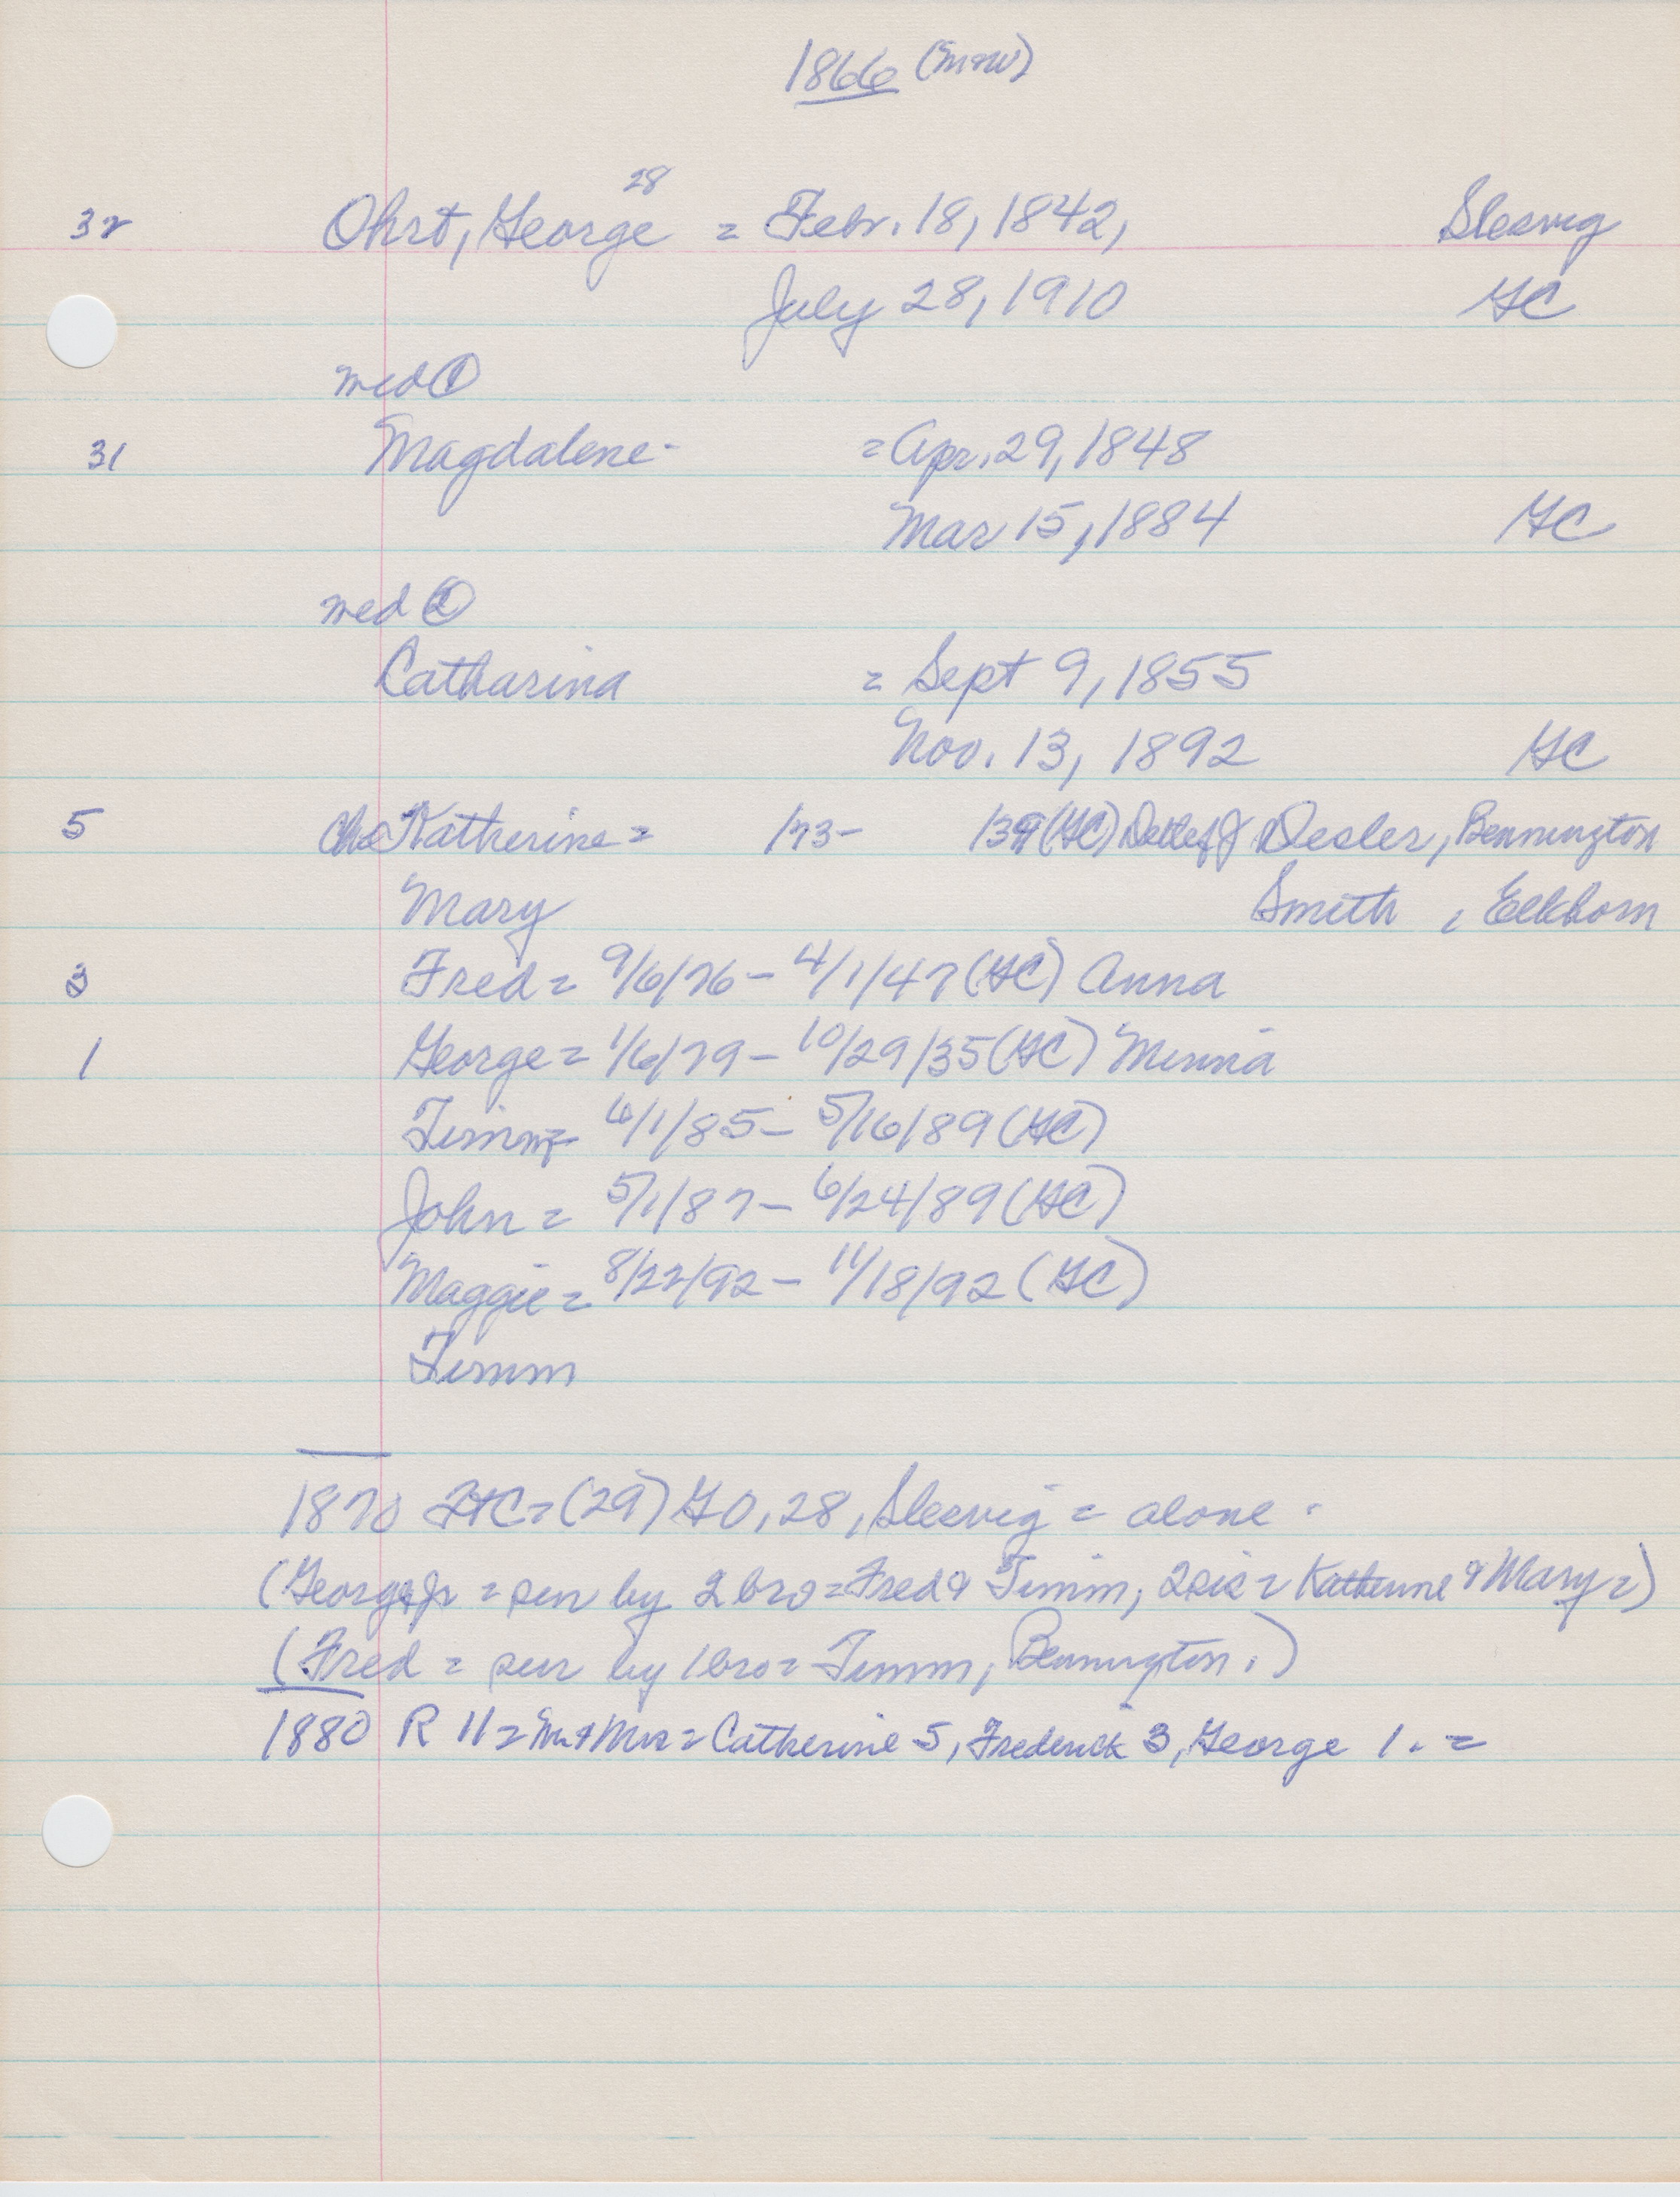 1866 (M&W)
28
32 Ohrt, George = Febr. 18, 1842, Slesvig
July 28, 1910 GC
med ①
31 Magdalene - = Apr. 29, 1848
Mar 15, 1884 GC
med ②
Catharina = Sept 9, 1855
Nov. 13, 1892 GC
5 Ch= Katherine = /73- /39 (GC) Detlef J Oesler, Bennington
Mary Smith , Elkhorn
3 Fred = 9/6/76 - 4/1/47 (GC) Anna
1 George = 1/6/79 - 10/29/35 (GC) Minna
Timm= 6/1/85 - 5/16/89 (GC)
John = 5/1/87 - 6/24/89 (GC)
Maggie = 8/22/92 - 11/18/92 (GC)
Timm
1870 = (29) GO, 28, Slesvig = alone.
(George Jr = sur by 2 bro = Fred & Timm, 2 sis = Katherine & Mary =)
(Fred = sur by 1 bro = Timm, Bennington.)
1880 R 11 = M & Mrs = Catherine 5, Frederick 3, George 1. =